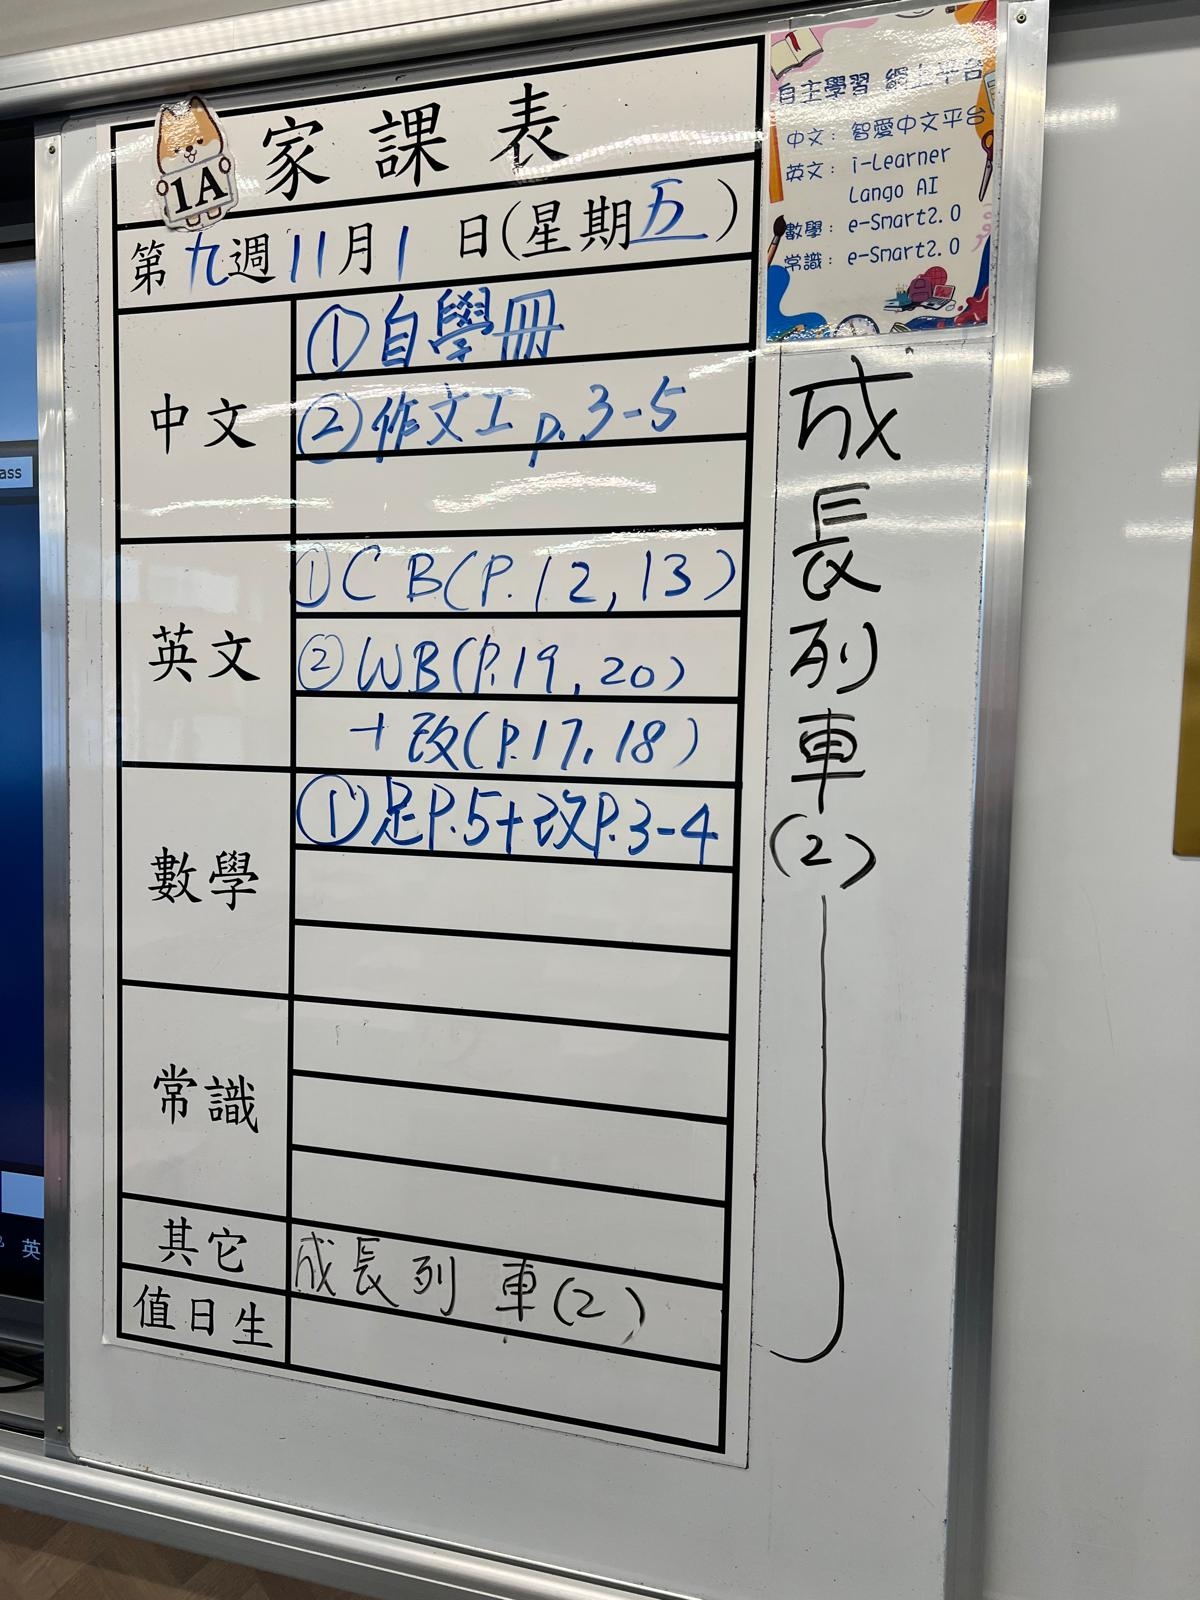 1A
家課表
第九週11月1日(星期五)
中文
①自學冊
②作文工 p.3-5
英文
①CB(P.12,13)
②WB(P.19,20)
+改(P.17,18)
數學
①足P.5+改P.3-4
常識
其它
成長列車(2)
值日生
自主學習 網上平台
中文：智愛中文平台
英文：i-Learner
Lango AI
數學：e-Smart2.0
常識：e-Smart2.0
成長列車(2)
ass
英